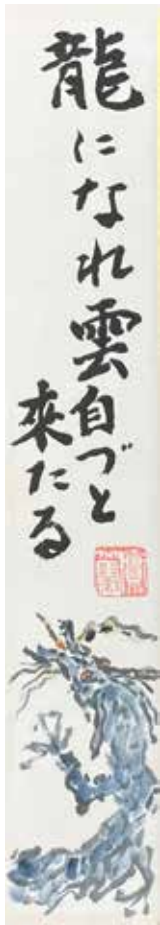 龍になれ雲自づと
來たる